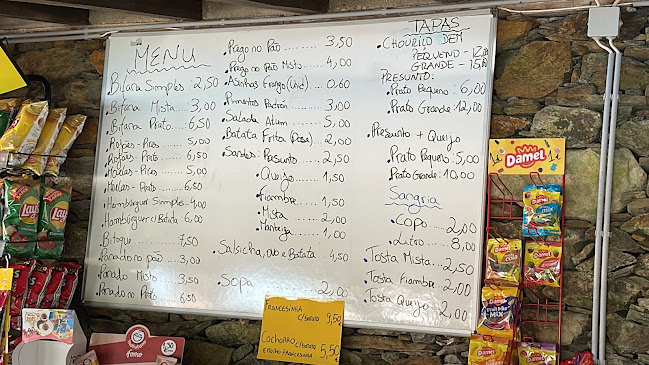 MENU
Bifana Simples ... 2,50
Bifana Mista ... 3,00
Bifana Prato ... 6,50
Rojões - Pires ... 5,00
Rojões - Prato ... 6,50
Moelas - Pires ... 5,00
Moelas - Prato ... 6,50
Hambúrguer Simples ... 4,00
Hambúrguer c/ Batata . 6,00
Bitoque ... 7,50
Panado no pão ... 3,00
Panado Misto ... 3,50
Panado no Prato ... 6,50
Prego no Pão ... 3,50
Prego no Pão Misto ... 4,00
Asinhas Frango (Uni) ... 0,60
Pimentos Padrón ... 3,00
Salada Atum ... 5,00
Batata Frita (Dose) ... 2,00
Sandes - Presunto ... 2,50
Queijo ... 1,50
Fiambre ... 1,50
Mista ... 2,00
Manteiga ... 1,00
Salsicha, Ovo e Batata ... 4,50
Sopa ... 2,00
TAPAS
CHOURIÇO
PEQUENO - 12,00
GRANDE - 15,00
PRESUNTO:
Prato Pequeno ... 6,00
Prato Grande ... 12,00
Presunto + Queijo
Prato Pequeno ... 5,00
Prato Grande ... 10,00
Sangria
Copo ... 2,00
Litro ... 8,00
Tosta Mista ... 2,50
Tosta Fiambre ... 2,00
Tosta Queijo ... 2,00
FRANCESINHA
c/ batata 9,50
Cachorro c/ batata
e molho francesinha 5,50
Damel
Lay's
Lay's
Damel
MIX
Damel